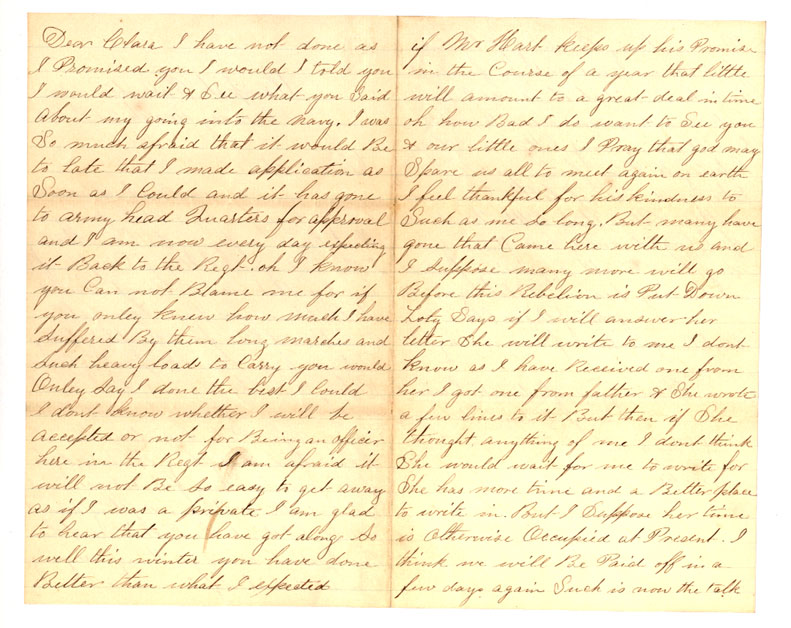 Dear Clara I have not done as
I Promised you I would I told you
I would wait & See what you Said
About my going into the navy. I was
So much afraid that it would Be
to late that I made application as
Soon as I Could and it has gone
to army head Quarters for approval
and I am now every day expecting
it Back to the Regt. oh I know
you Can not Blame me for if
you onley knew how much I have
suffered By them long marches and
such heavy loads to Carry you would
Onley Say I done the best I Could
I dont know whether I will be
accepted or not for Being an officer
here in the Regt I am afraid it
will not Be so easy to get away
as if I was a private I am glad
to hear that you have got along so
well this winter you have done
Better than what I expected
if Mr Hart Keeps up his Promise
in the Course of a year that little
will amount to a great deal in time
oh how Bad I do want to See you
& our little ones I Pray that god may
Spare us all to meet again on earth
I feel thankful for his kindness to
Such as me so long. But many have
gone that Came here with us and
I suppose many more will go
Before this Rebelion is Put Down
Loty Says if I will answer her
letter She will write to me I dont
know as I have Received one from
her I got one from father & She wrote
a few lines to it But then if She
thought anything of me I dont think
She would wait for me to write for
She has more time and a Better place
to write in. But I Suppose her time
is Otherwise Occupied at Present. I
think we will Be Paid off in a
few days again Such is now the talk